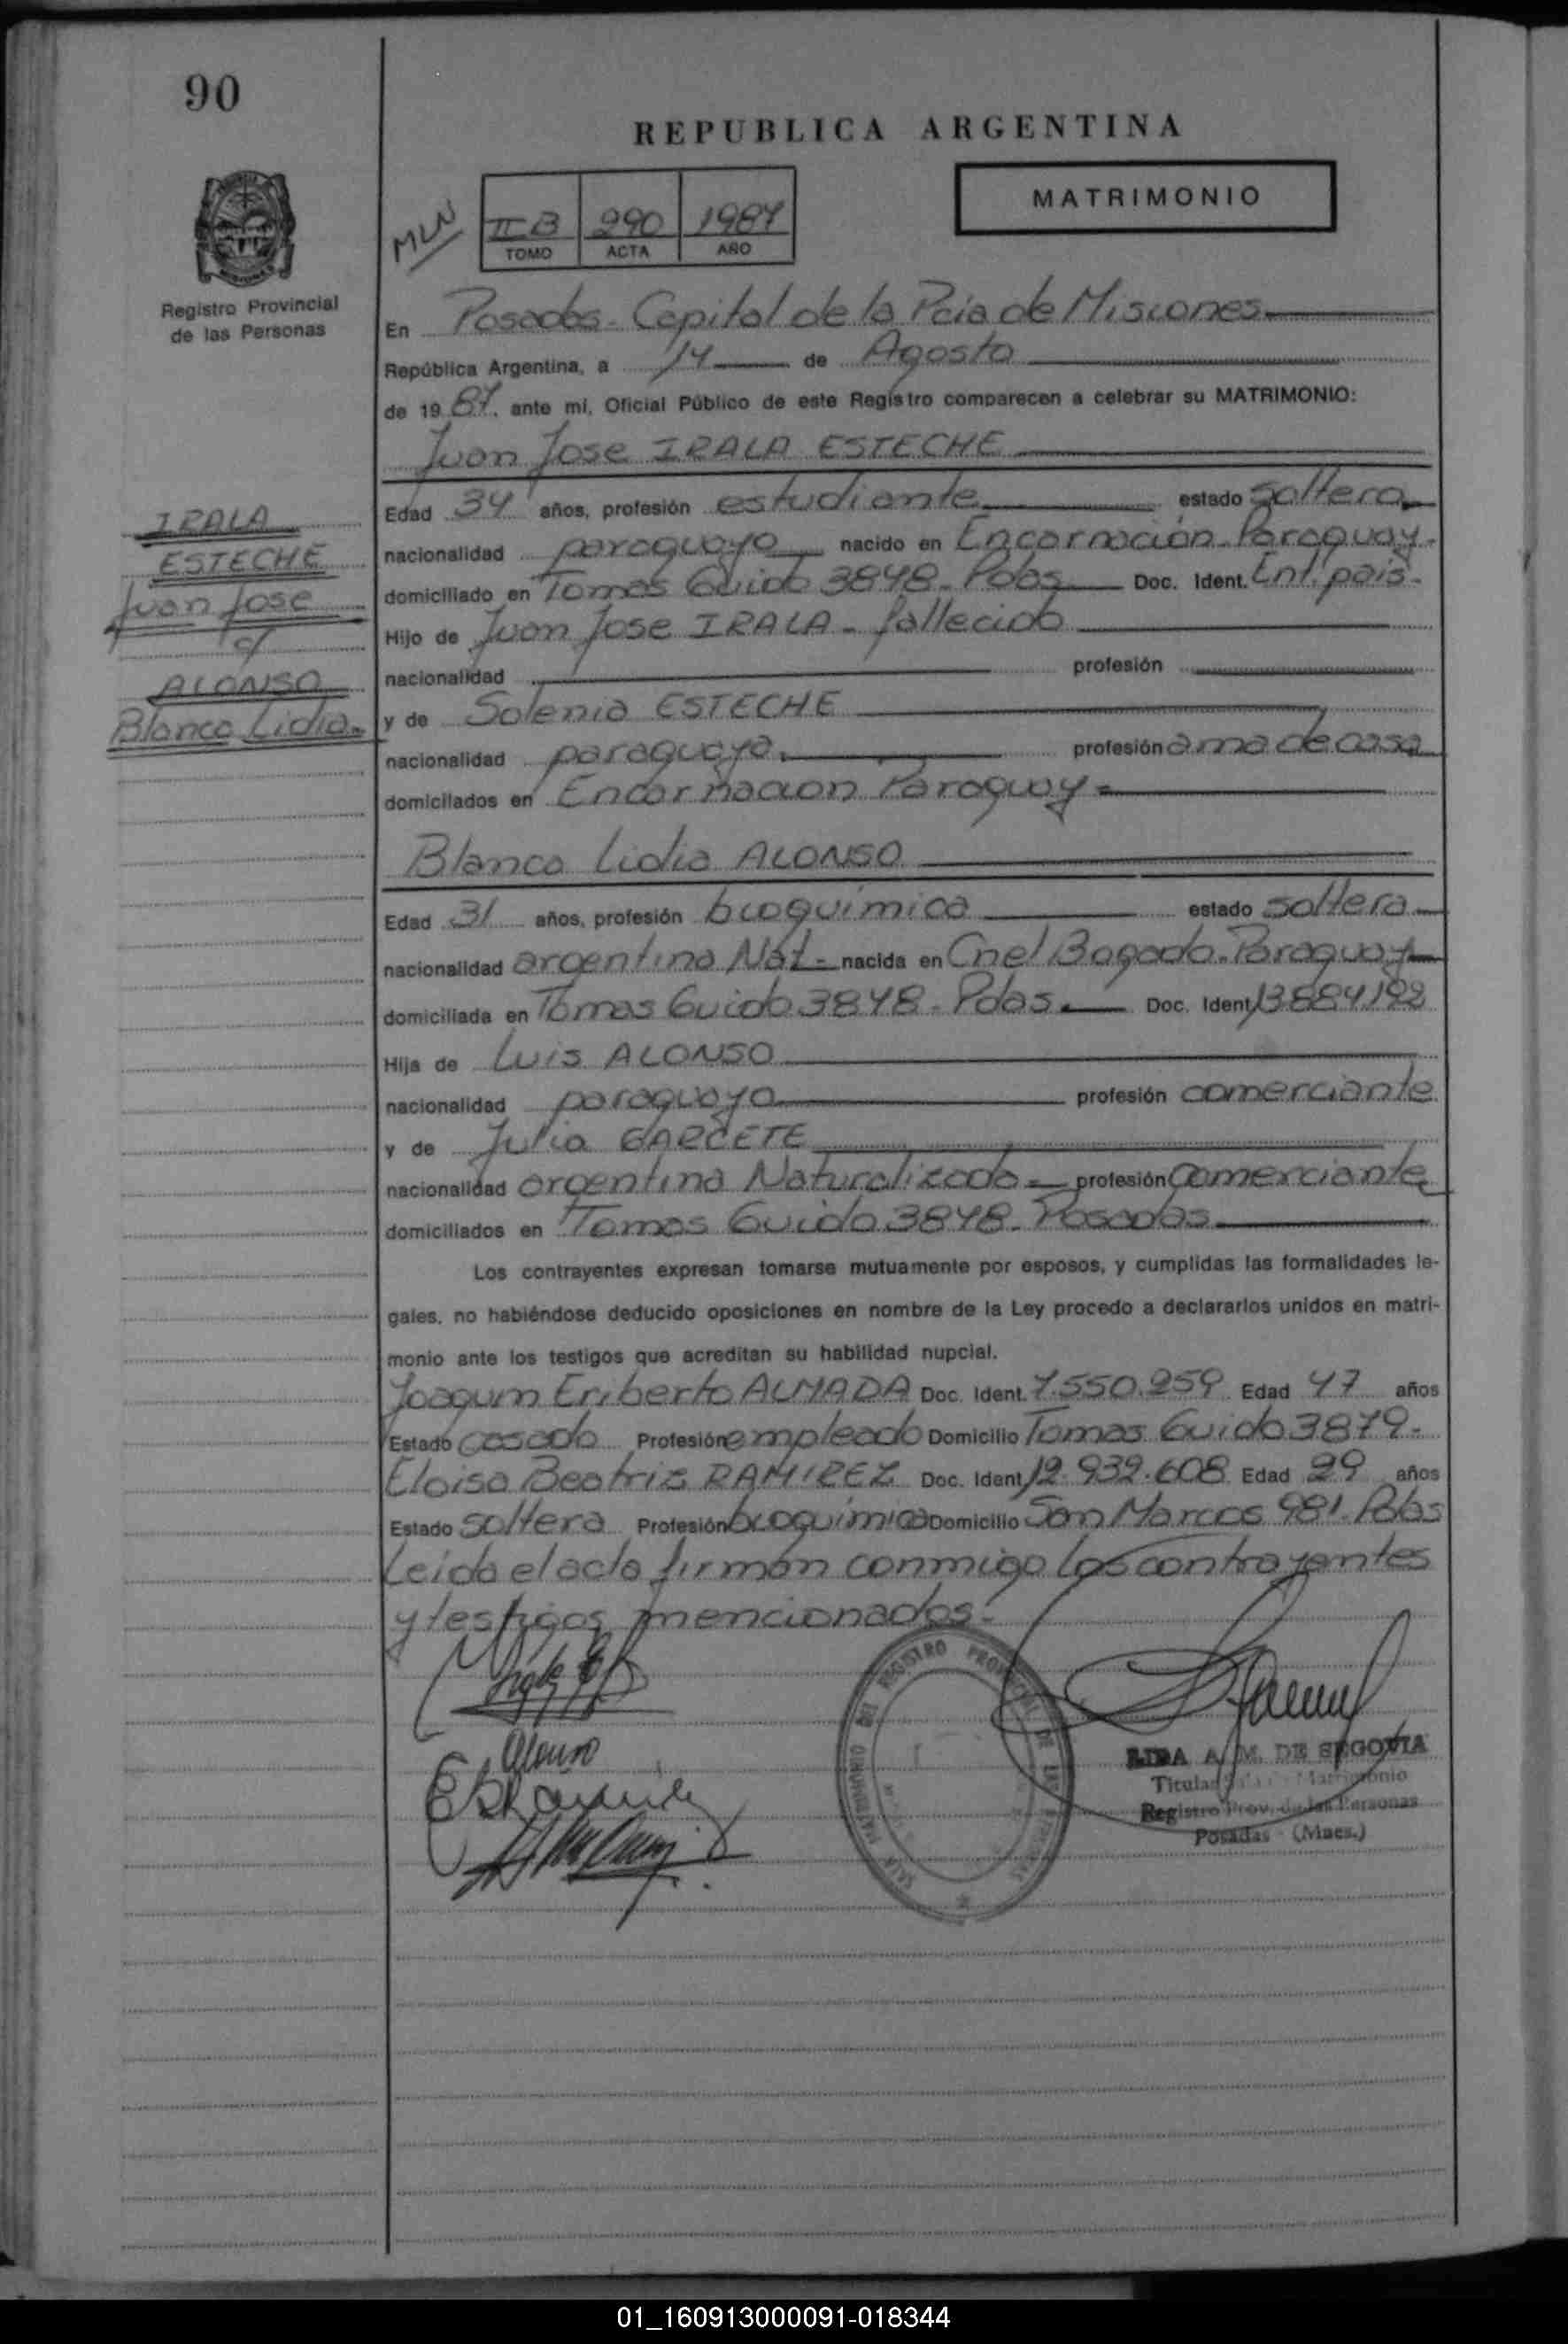 90
REPUBLICA ARGENTINA
MATRIMONIO
MLN
II B 290 1987
TOMO ACTA AÑO
Registro Provincial
de las Personas
En Posadas - Capital de la Pcia de Misiones
República Argentina, a 14 de Agosto
de 1987. ante mí, Oficial Público de este Registro comparecen a celebrar su MATRIMONIO:
Juan Jose IRALA ESTECHE
IRALA
ESTECHE
Juan Jose
c/
ALONSO
Blanca Lidia
Edad 34 años, profesión estudiante estado soltero
nacionalidad paraguayo nacido en Encarnación - Paraguay -
domiciliado en Tomas Guido 3848 - Pdas Doc. Ident. Ent. pais -
Hijo de Juan Jose IRALA - fallecido
nacionalidad profesión
y de Solenia ESTECHE
nacionalidad paraguaya profesión ama de casa
domicilados en Encarnacion Paraguay
Blanca Lidia ALONSO
Edad 31 años, profesión bioquimica estado soltera
nacionalidad argentina Nat - nacida en Cnel Bogado - Paraguay
domiciliada en Tomas Guido 3848 - Pdas. Doc. Ident. 13884192
Hija de Luis ALONSO
nacionalidad paraguayo profesión comerciante
y de Julia GARCETE
nacionalidad argentina Naturalizada profesión comerciante
domiciliados en Tomas Guido 3848 - Posadas
Los contrayentes expresan tomarse mutuamente por esposos, y cumplidas las formalidades le-
gales, no habiéndose deducido oposiciones en nombre de la Ley procedo a declararlos unidos en matri-
monio ante los testigos que acreditan su habilidad nupcial.
Joaquin Eriberto ALMADA Doc. Ident. 7.550.259 Edad 47 años
Estado casado Profesión empleado Domicilio Tomas Guido 3879 -
Eloisa Beatriz RAMIREZ Doc. Ident. 12.932.608 Edad 29 años
Estado soltera Profesión bioquimica Domicilio San Marcos 981 - Pdas
Leida el acta firman conmigo los contrayentes
y testigos mencionados -
Alonso
REGISTRO PROVINCIAL DE LAS PERSONAS
LIDA A. M. DE SEGOVIA
Titular Sala de Matrimonio
Registro Prov. de las Personas
Posadas - (Mnes.)
01_160913000091-018344